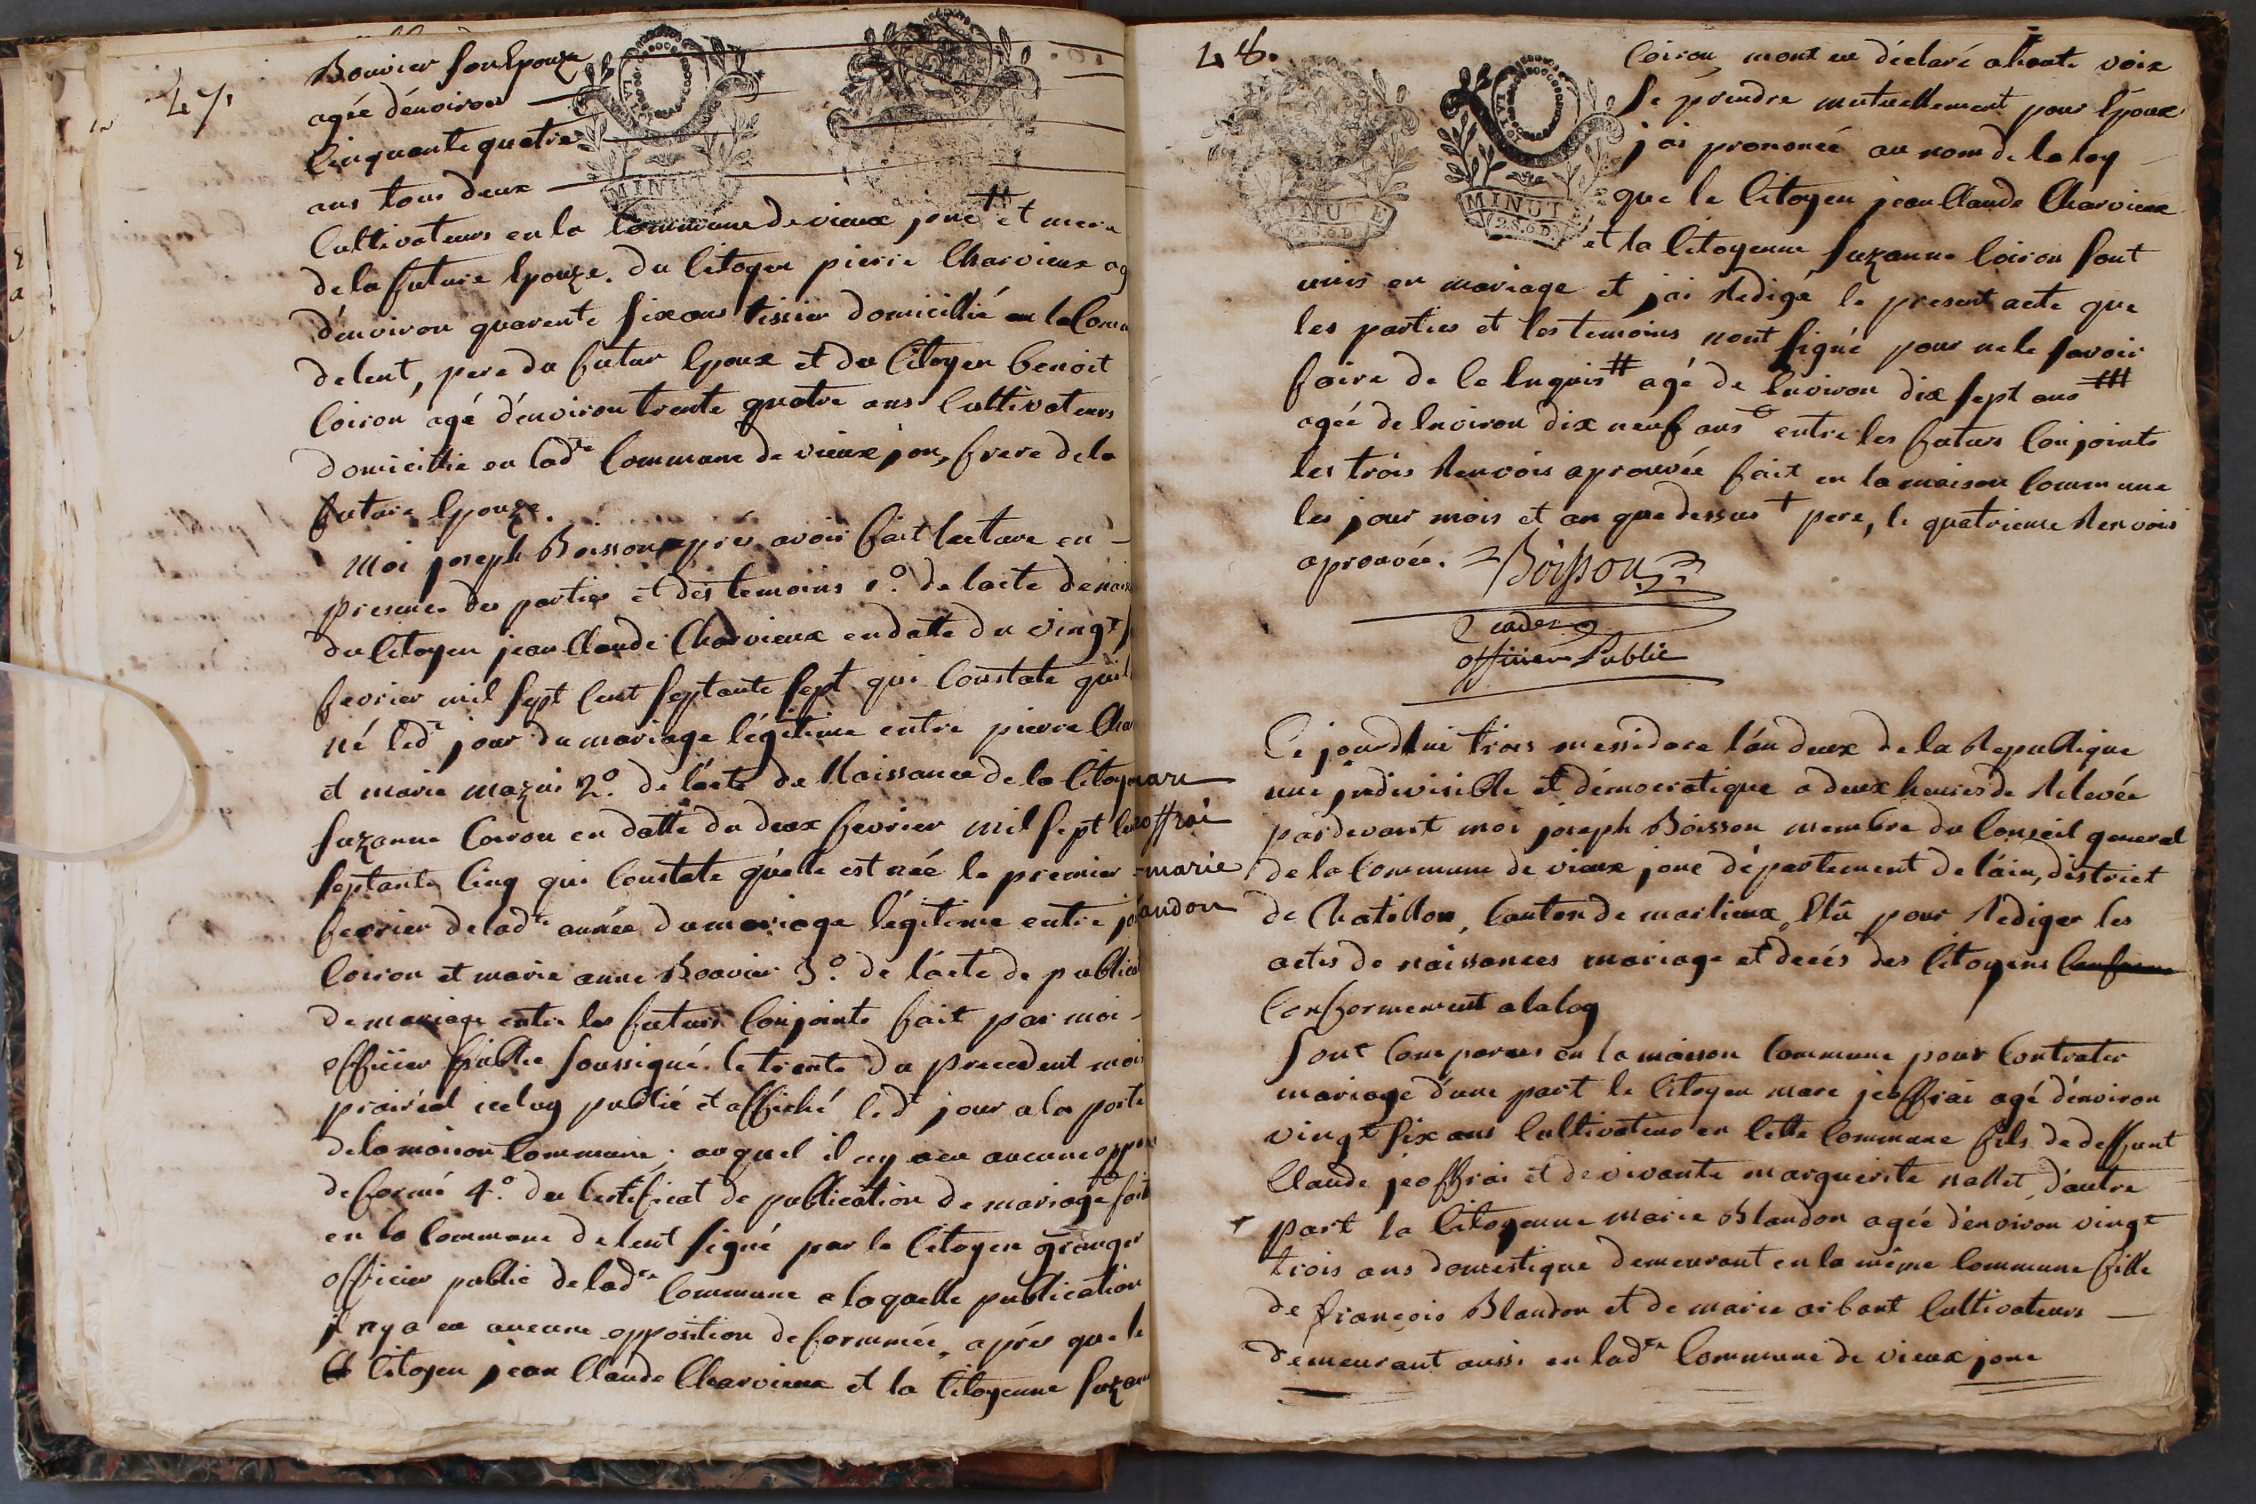 47.
Bouvier son Epouze
agée d'énviron
Cinquante quatre
ans tous deux
Cultivateurs en la Commune de vieux jonc # et mere
de la future Epouze. du Citoyen pierre Charvieux ag
d'énviron quarente six ans tissier domicillié en la Comu
de lent, pere du futur Epoux et du Citoyen benoit
Coiron agé d'énviron trente quatre ans Cultivateurs
domicillié en lad.te Commune de vieux jonc, frere de la
future Epouze.
Moi joseph Boisson après avoir fait lecture en
presence des parties et des temoins 1.° de lacte de nais
du Citoyen jean Claude Charvieux en datte du vingt
fevrier mil sept Cent septante sept qui Constate quil
né led.t jour du mariage légitime entre pierre Cha
et marie mazui 2.° de l'acte de Naissance de la Citoy
suzanne Coiron en datte du deux fevrier mil sept Cen
septante Cinq qui Constate qu'elle est née le premier
fevrier de lad.te année du mariage légitime entre
Coiron et marie anne Bouvier 3.° de l'acte de publica
de mariage entre les futurs Conjoints fait par moi
officier public soussigné le trente du precedent mois
prairéal iceluy publié et affiché led.t jour a la porte
de la maison Commune; auquel il ny a eu aucune oppo
de formé 4.° du Certificat de publication de mariage fait
en la Commune de lent signé par le Citoyen granger
officier public de lad.te Commune a laquelle publication
il ny a eu aucune opposition de formmée, après que le
Citoyen jean Claude Charvieux et la Citoyenne suzan
marc
jeoffrai
marie
blandon
48.
MINUTE
MINUTE
Coiron, mont eu déclaré a haute voix
se prendre mutuellement pour Epoux
j'ai prononcé au nom de la loy
que le Citoyen jean Claude Charvieux
et la Citoyenne suzanne Coiron sont
unis en mariage et j'ai Redigé le present acte que
les parties et les temoins nont signé pour ne le savoir
faire de ce Enquis # agé de Environ dix sept ans ###
agée de Environ dix neuf ans entre les futurs Conjoints
les trois Renvois aprouvée fait en la maison Commune
les jour mois et an que dessus + pere, le quatrieme Renvois
aprouvée. Boisson
officier Public
Ce jourdhui trois messidore l'an deux de la Republique
une jndivisible et démocratique a deux heures de Relevée
pardevant moi joseph Boisson membre du Conseil general
de la Commune de vieux jonc département de l'ain, district
de Chatillon, Canton de marlieux, Elû pour Rediger les
actes de naissances mariage et décés des Citoyens Conforme
Conformement a la loy
sont Comparus en la maison Commune pour Contrater
mariage d'une part le Citoyen marc jeoffrai agé d'énviron
vingt six ans Cultivateur en Cette Commune fils de deffunt
Claude jeoffrai et de vivante marguerite nallet, d'autre
part la Citoyenne marie Blandon agée d'environ vingt
trois ans domestique demeurant en la même Commune fille
de françois Blandon et de marie arbant Cultivateurs
demeurant aussi en lad.te Commune de vieux jonc